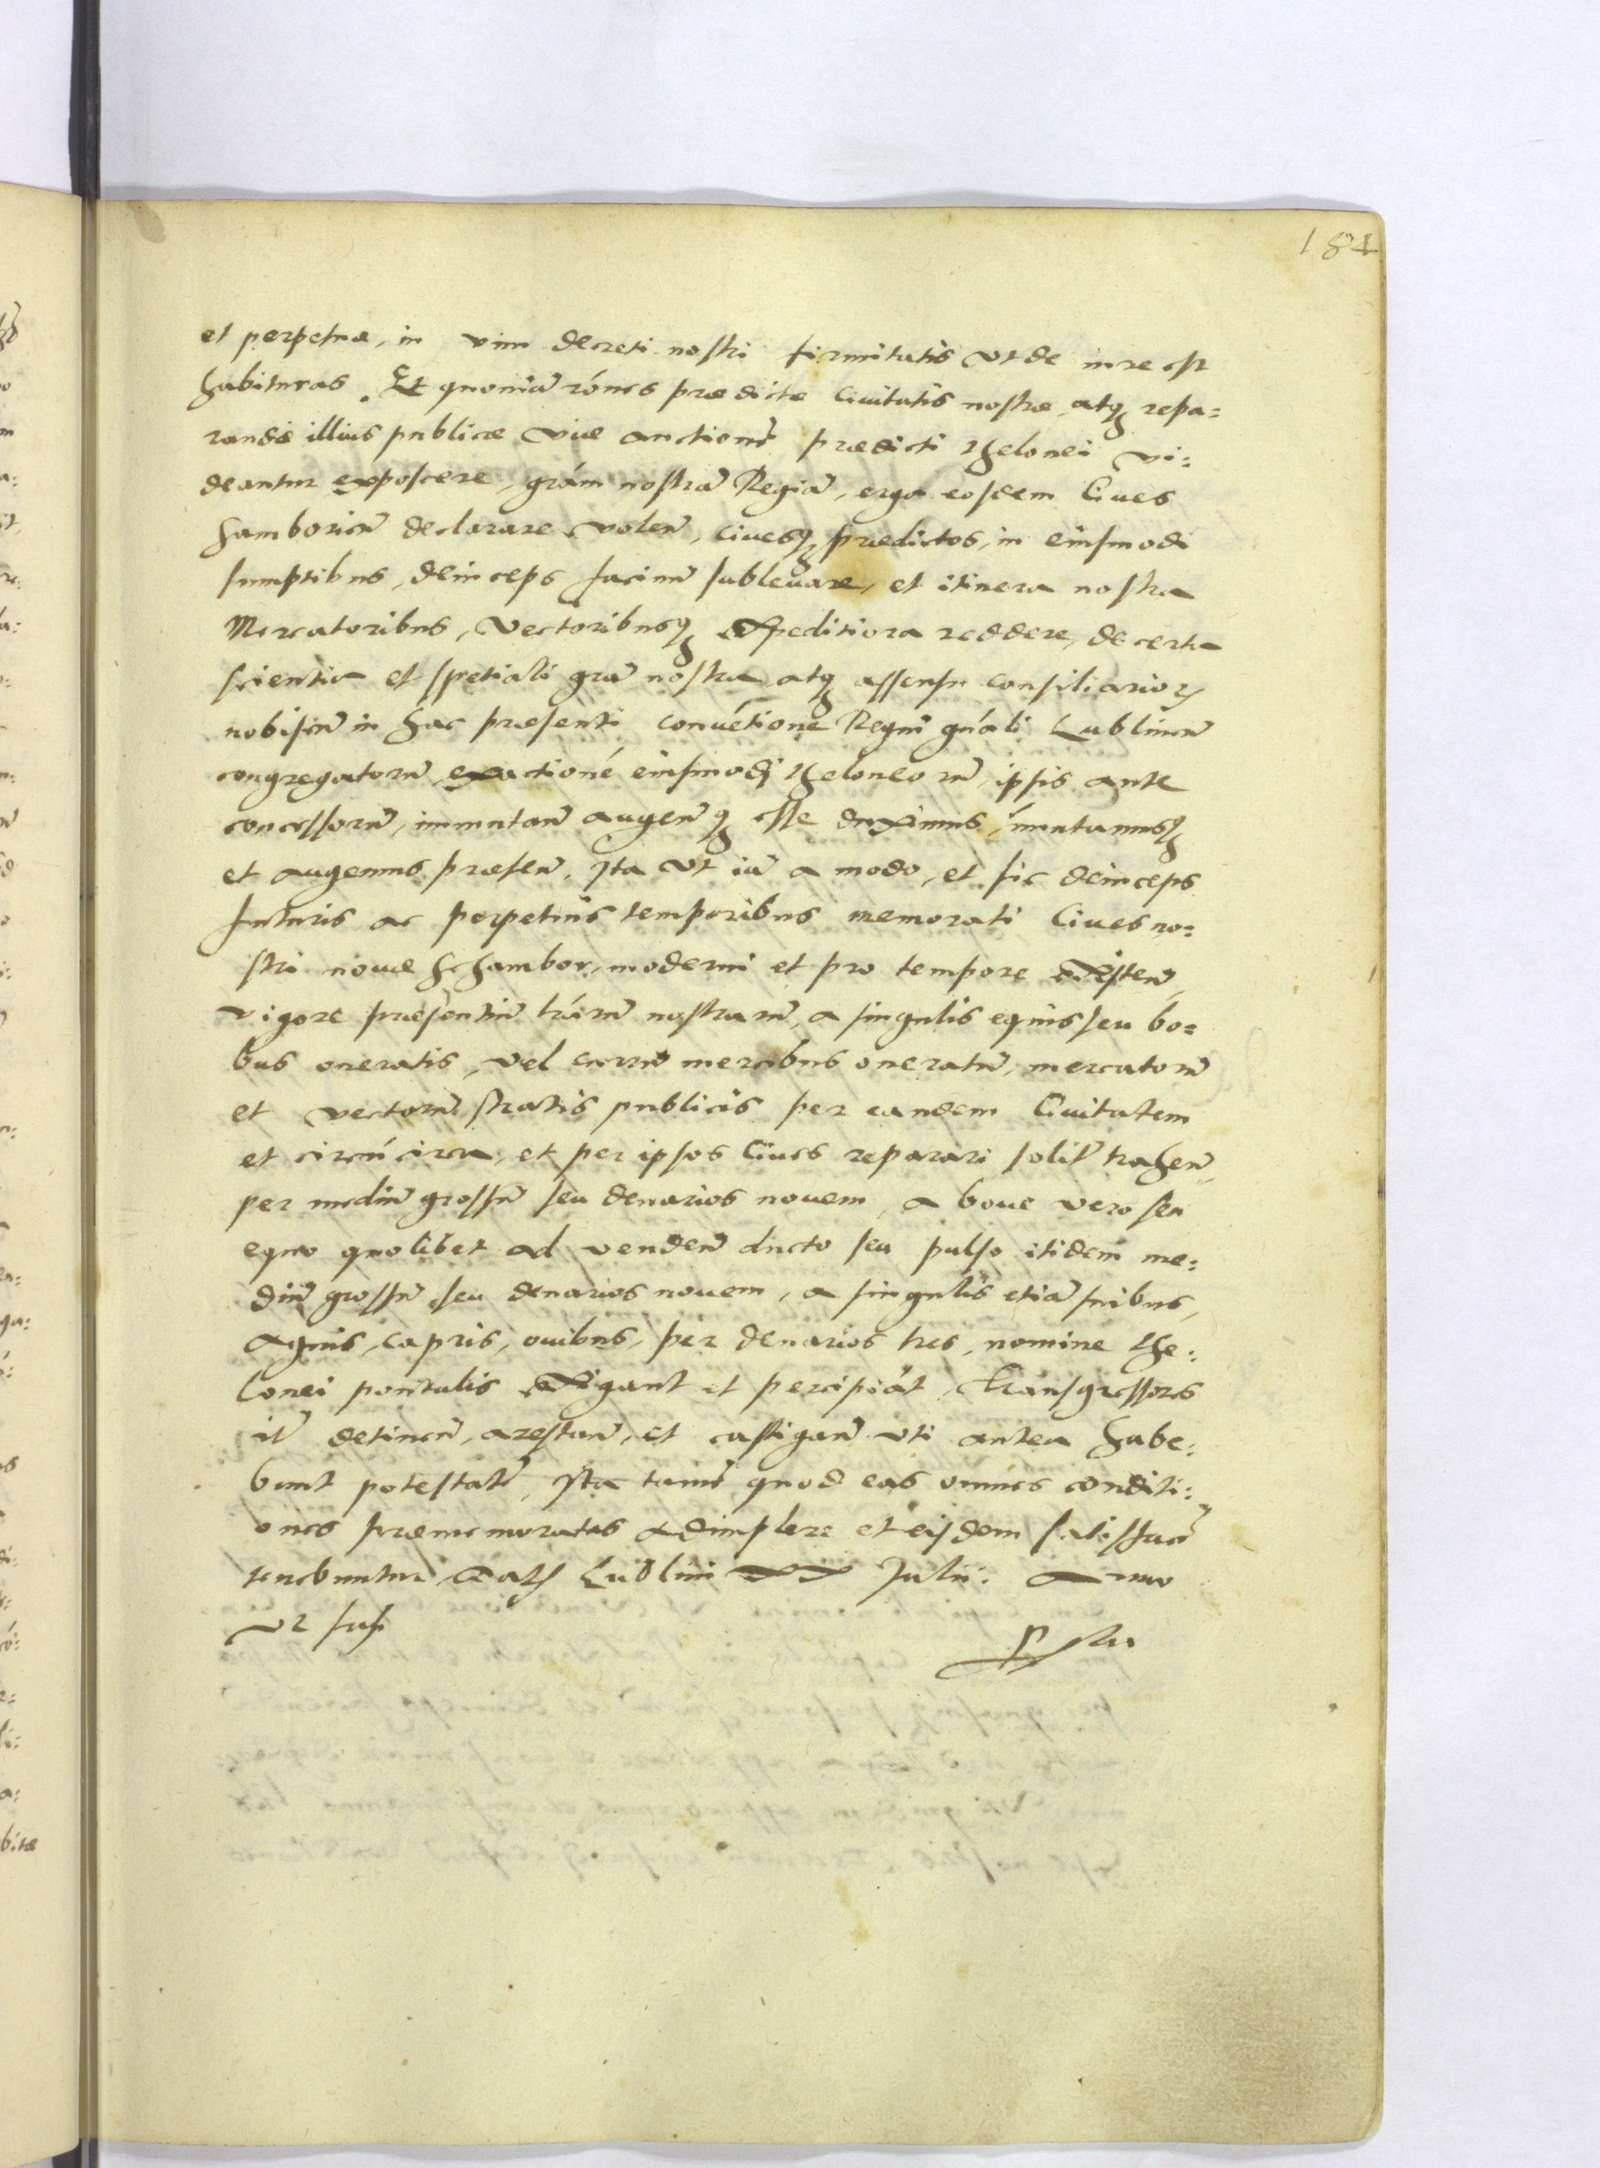 184
et perpetuæ, in vim decreti nostri firmitatis vt de iure est
habituras. Et quoniã rónes prædictæ Ciuitatis nostræ atq repa=
randæ illius publicæ viæ auctionẽ prædicti thelonei vi=
deantur exposcere, grám nostrã Regiã, erga eosdem Ciues
Samborień declarare voleñ, Ciuesq prædictos, in eiusmodi
sumptibus, deinceps faciliús subleuare, et itinera nostra
Mercatoribus, Vectoribusq expeditiora reddere, de certa
scientia et spetiali grã nostra atq assensu consiliarioꝝ
nobiscũ in hac præsenti conuẽtione Regni gńali Lublineñ
congregatorũ, exactioné eiusmodi theloneorũ, ipsis ante
concessorũ, immutañ augeñq esse duximus, ĩmutamusq
et augemus præseñ. Ita vt iã a modo, et sic deinceps
futuris ac perpetuis temporibus memorati Ciues no=
stri nouæ Schambor, moderni et pro tempore existeñ,
vigore præsentiũ lrárũ nostrarũ, a singulis equis seu bo=
bus oneratis, vel curru mercibus oneratũ, mercatorũ
et vectorũ stratis publicis per eandem Ciuitatem
et circũcirca, et per ipsos Ciues reparari solit̃ traheñ,
per mediũ grossũ seu denarios nouem, a boue vero seu
equo quolibet ad vendeñ ducto seu pulso itidem me=
diũ grossũ seu denarios nouem, a singulis etiã suibus,
agnis, capris, ouibus, per denarios tres, nomine the=
lonei pontalis exigant et percipiãt, transgressores
it̃ detineñ, arestañ, et castigañ vti antea habe=
bunt potestatẽ, Ita tamẽ quod eas omnes conditi=
ones præmemoratas adimplere et eisdem satisfacẽ
tenebuntur. Datũ Lublini XX Julii. Anno
vt sup̃